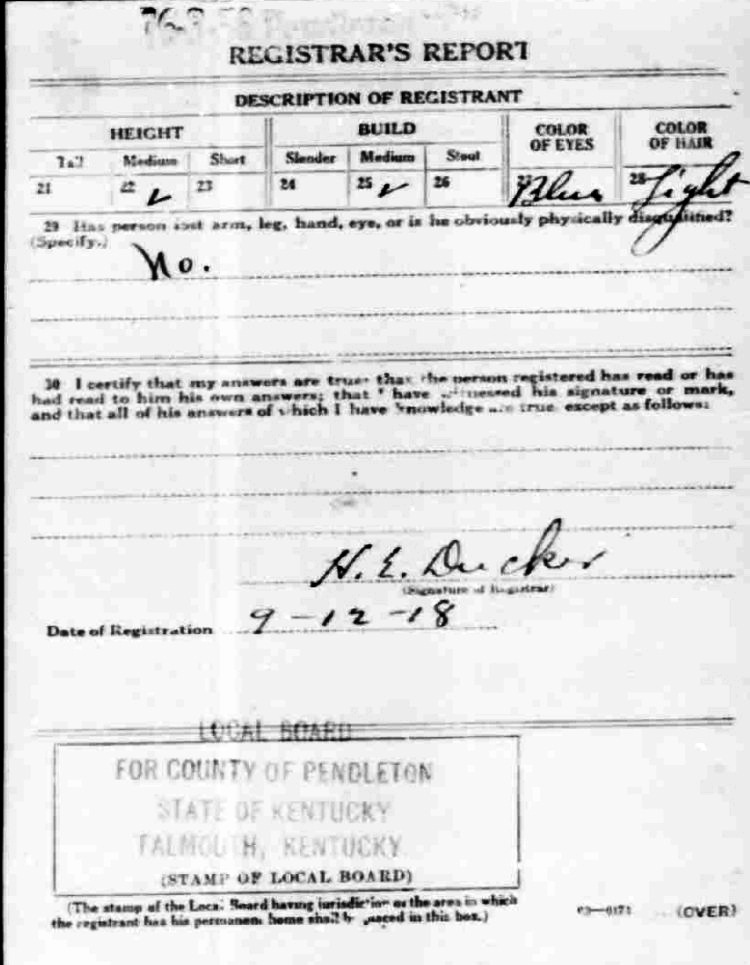 REGISTRAR'S REPORT
DESCRIPTION OF REGISTRANT
HEIGHT BUILD COLOR OF EYES COLOR OF HAIR
Tall Medium Short Slender Medium Stout
21 22 ✓ 23 24 25 ✓ 26 27 Blue 28 Light
29 Has person lost arm, leg, hand, eye, or is he obviously physically disqualified?
(Specify.)
No.
30 I certify that my answers are true; that the person registered has read or has
had read to him his own answers; that I have witnessed his signature or mark,
and that all of his answers of which I have knowledge are true, except as follows:
H. E. Ducker
(Signature of Registrar)
Date of Registration 9-12-18
LOCAL BOARD
FOR COUNTY OF PENDLETON
STATE OF KENTUCKY
FALMOUTH, KENTUCKY
(STAMP OF LOCAL BOARD)
(The stamp of the Local Board having jurisdiction of the area in which
the registrant has his permanent home shall be placed in this box.)
03—6171 (OVER)